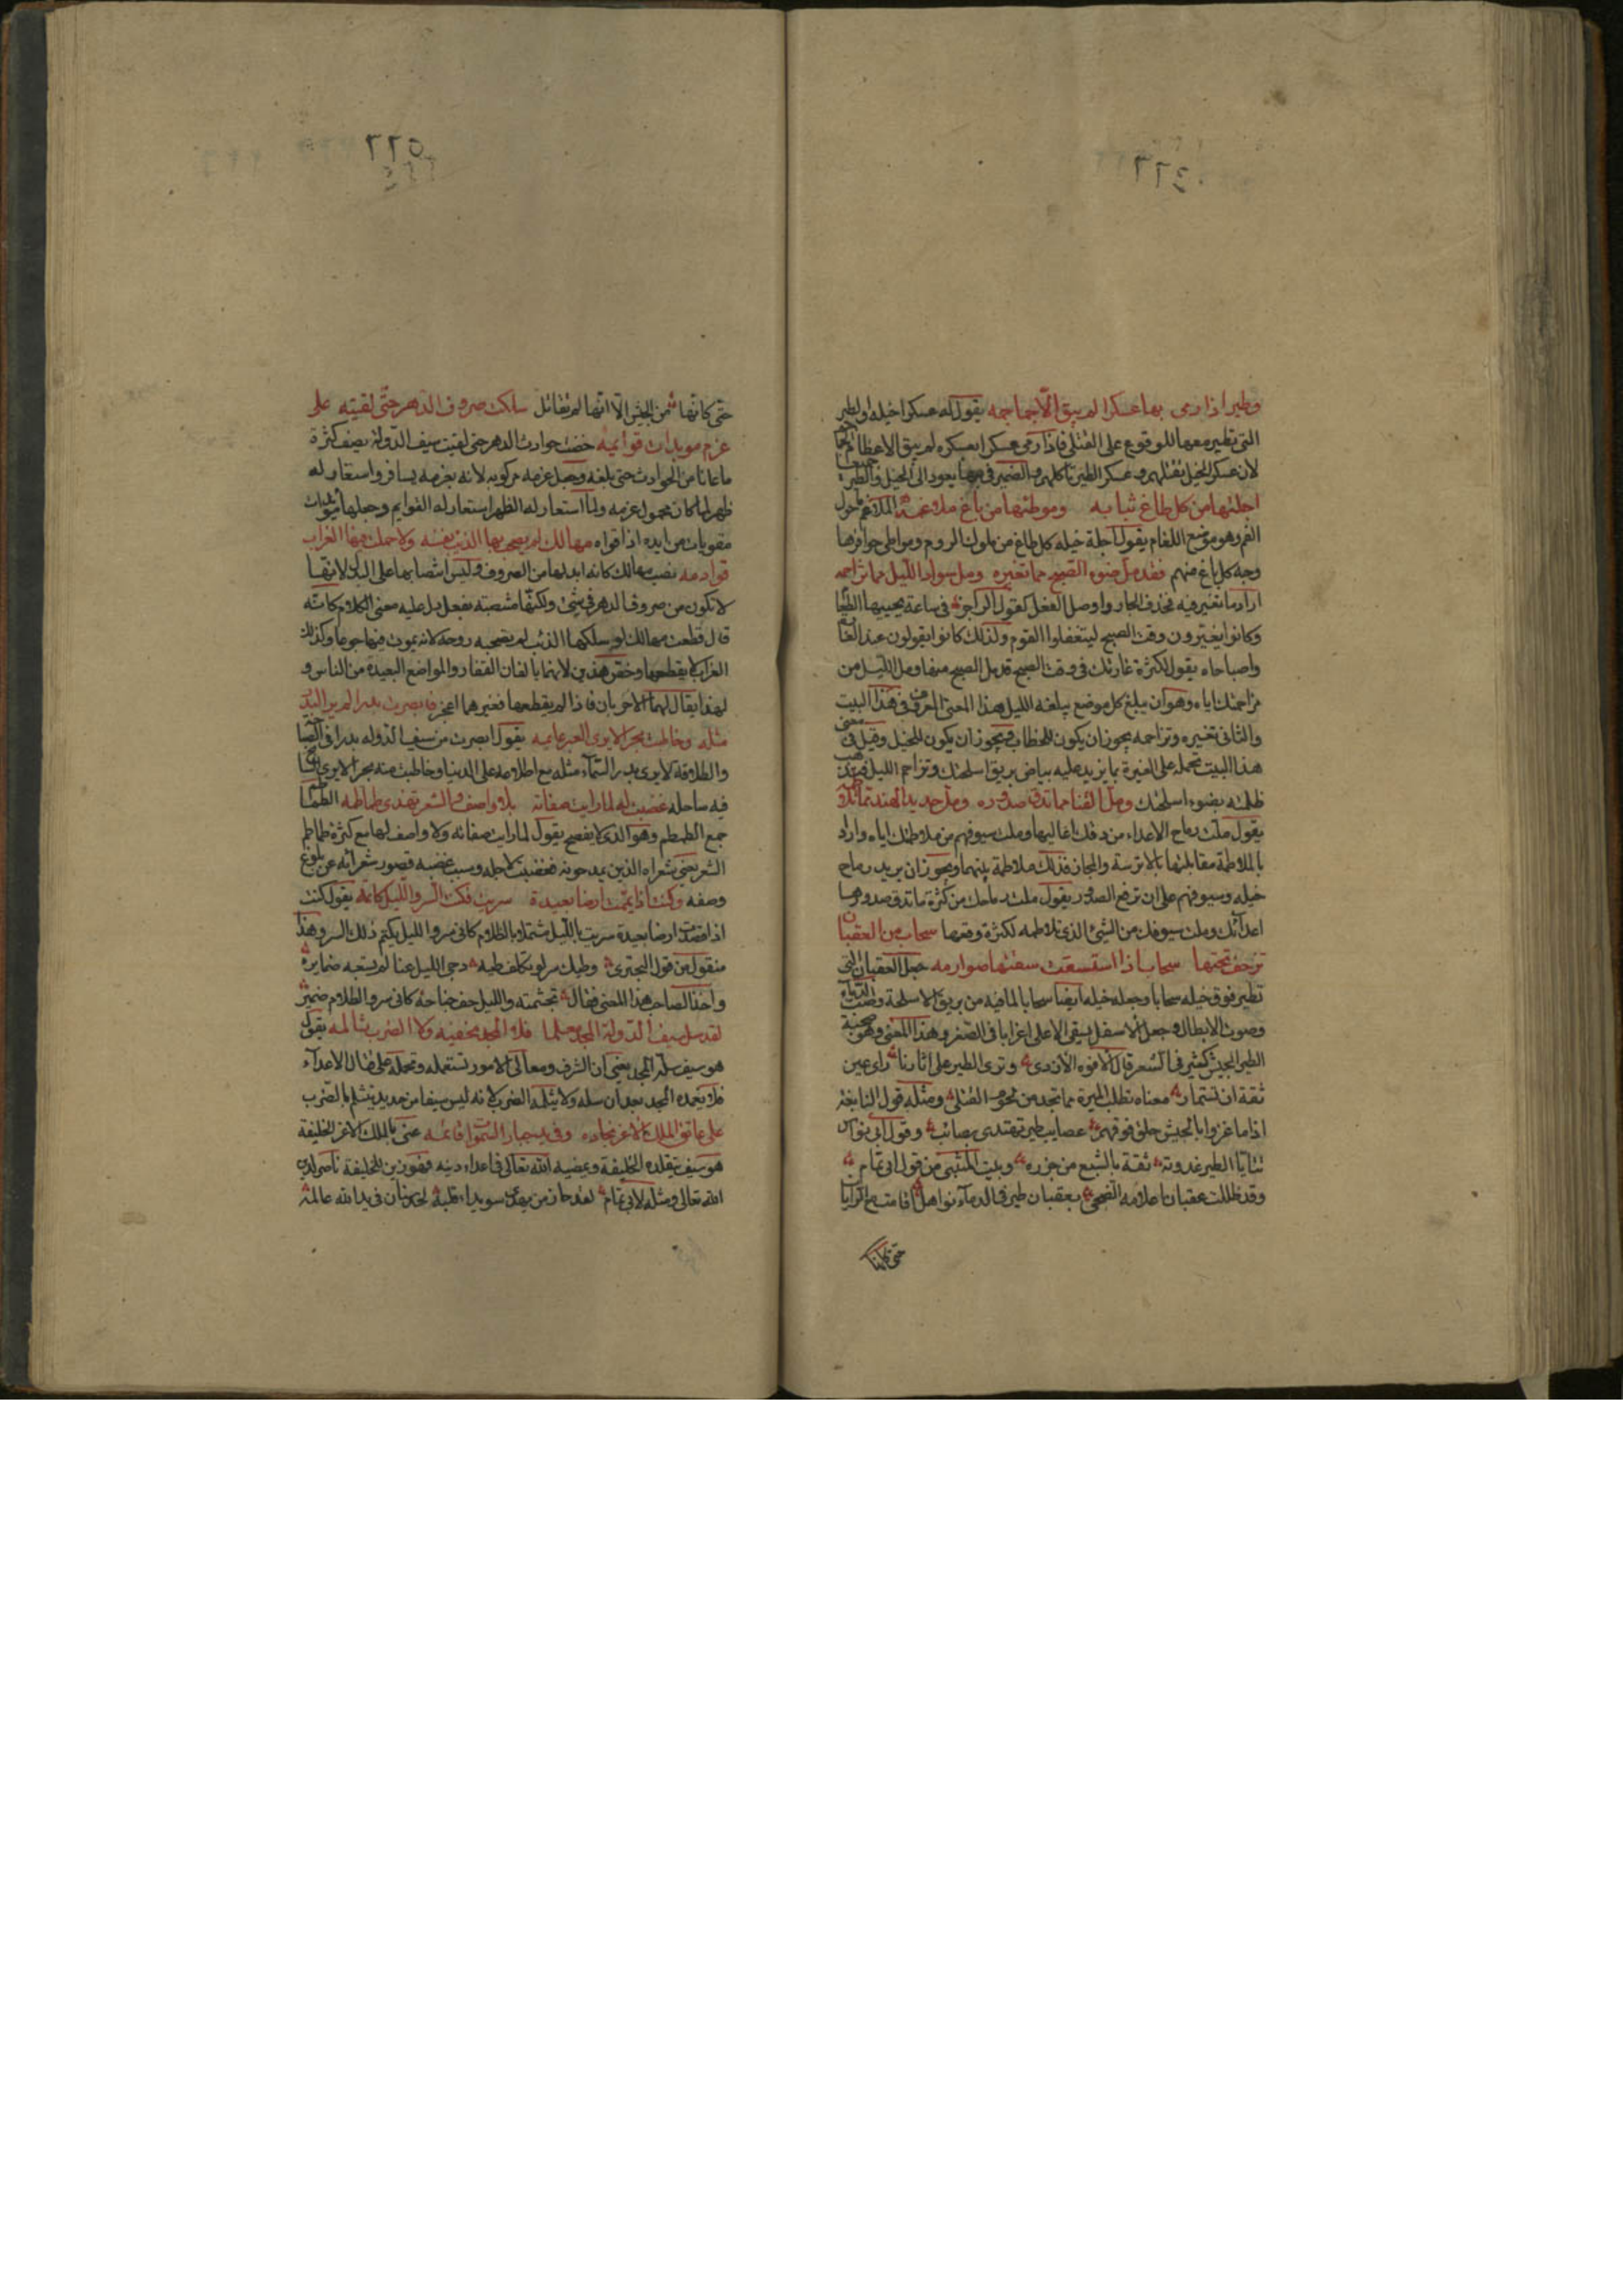 ٤٦٦
وطير اذا رمى بها عسكرا لم يبق الّا جماجمه يقول له عسكرا خيله وطير
التى تطير معها للوقوع على القتلى فاذا رمى عسكرا بعسكره لم يبق الاعظام الجماجم
لان عسكر الخيل تقتلهم وعسكر الطير تاكلهم والضمير فى بها يعود الى الخيل والطير جميعا
اجلتها من كل طاغ ثيابه وموطئها من كل باغ ملاغمه الملاغم ما حول
الفم وهو موضع اللغام يقول اجلة خيله كل طاغ من ملوك الروم ومواطئ حوافرها
وجه كل باغ منهم فقد مل ضوء الصبح مما تغيره ومل سواد الليل مما تزاحمه
اراد مما تغير فيه فحذف الجار واوصل الفعل كقول الراجز فى ساعة يحبها الطعام
وكانوا يغيرون وقت الصبح ليتغفلوا القوم ولذلك كانوا يقولون عند الغارة
واصباحاه يقول لكثرة غارتك فى وقت الصبح قد مل الصبح منها ومل الليل من
مزاحمتك اياه وهو ان يبلغ كل موضع يبلغه الليل هذا المعنى المعروف فى هذا البيت
والثانى تغيره وتزاحمه يجوز ان يكون للخطاب ويجوز ان يكون للخيل وقيل فى معنى
هذا البيت تحمله على الغيرة بما يزيد عليه بياض بريق اسلحتك وتزاحم الليل فتذهب
ظلمته بضوء اسلحتك ومل القنا مما تدق صدوره ومل حديد الهند مما تلاطمه
يقول ملت رماح الاعداء من دقك اعاليها وملت سيوفهم من ملاطمتك اياه واراد
بالملاطمة مقابلتها بالاترسة والمجان فذلك ملاطمة بينهما ويجوز ان يريد رماح
خيله وسيوفهم على ان ترفع الصدور يقول ملت رماحك من كثرة ما تدق صدورها
اعدائك وملت سيوفك من الشئ الذى تلاطمه لكثرة وقعها سحاب من العقبان
تزحف تحتها سحاب اذا استسقت سقتها صوارمه جعل العقبان التى
تطير فوق خيله سحابا وجعله خيله ايضا سحابا لما فيه من بريق الاسلحة وصب الدماء
وصوت الابطال وجعل الاسفل يسقى الاعلى اغرابا فى الصنعة وهذا المعنى وهو صحبة
الطير الجيش كثير فى الشعر قال الافوه الاودى وترى الطير على اثارنا راى عين
ثقة ان ستمار معناه تطلب الميرة مما تجد من لحوم القتلى ومثله قول النابغة
اذا ما غزوا بالجيش حلق فوقهم عصايب طير تهتدى بعصائب وقول ابى نواس
تتايا الطير غدوته ثقة بالشبع من جزره وبيت المتنبى من قول ابى تمام
وقد ظللت عقبان اعلامه الضحى بعقبان طير فى الدماء نواهل اقامت مع الرايا
حتى كانها
٥٦٦
حتى كانها من الجيش الّا انها لم تقاتل سلكت صروف الدهر حتى لقيته على
عزم مويدات قوائمه خضت حوادث الدهر حتى لقيت سيف الدولة يصف كثرة
ما عانا من الحوادث حتى بلغه وجعل عزمه مركوبه لانه بعزمه يسافر واستعار له
ظهرا لما كان محمول عزمه ولما استعار له الظهر استعار له القوايم وجعلها مؤيدات
مقويات من ايده اذا قواه مهالك لم يصحب بها الذئب نفسه ولا حملت فيها الغراب
قوادمه نصب مهالك كانه ابدلها من الصروف وليس انتصابها على البدل لانها
لا تكون من صروف الدهر فى شئ ولكنها منتصبة بفعل دل عليه معنى الكلام كانه
قال قطعت مهالك لو سلكها الذئب لم يصحبه روحه لانه يموت فيها جوعا وكذلك
الغراب لا يقطعها وخص هذين لانهما يالفان القفار والمواضع البعيدة من الناس و
لهذا يقال لهما الاخربان فاذا لم يقطعها فغيرهما اعجز فابصرت بدرا لم ير البدر
مثله وخاطبت بحرا لا يرى العبر عايمه يقول ابصرت من سيف الدوله بدرا فى الضياء
والطلاقة لا يرى بدر السماء مثله مع اطلاعه على الدنيا وخاطبت منه بحرا لا يرى السابح
فيه ساحله غضبت له لما رايت صفاته بلا واصف والشعر تهذى طماطمه الطماطم
جمع الطمطم وهو الذى لا يفصح يقول لما رايت صفاته ولا واصف لها مع كثرة طماطم
الشعر يعنى شعراه الذين يمدحونه فغضبت لاجله وسبب غضبه قصور شعرائه عن بلوغ
وصفه وكنت اذا يممت ارضا بعيدة سريت فكنت السر والليل كاتمه يقول كنت
اذا قصدت ارضا بعيدة سريت بالليل مشتملا بالظلام كانى سر والليل يكتم ذلك السر وهذا
منقول من قول البحترى وطيك سرا لو تكلف طيه دجى الليل عنا لم تسعه ضمايره
واخذ الصاحب هذا المعنى فقال تجشمته والليل وحف جناحه كانى سر والظلام ضمير
لقد سل سيف الدولة المجد معلما فلا المجد مخفيه ولا الضرب ثالمه يقول
هو سيف سله المجد يعنى ان الشرف ومعالى الامور تستعمله وتحمله على قتال الاعداء
فلا يغمده المجد بعد ان سله ولا يثلمه الضرب لانه ليس سيفا من حديد يتثلم بالضرب
على عاتق الملك الاغر نجاده وفى يد جبار السموات قائمه عنى بالملك الاغر الخليفة
هو سيف يتقلده الخليفة ويمضيه الله تعالى فى اعداء دينه فهو زين للخليفة ناصر لدين
الله تعالى ومثله لابى تمام لقد حان من يهدى سويداء قلبه لحد سنان فى يد الله عالمه